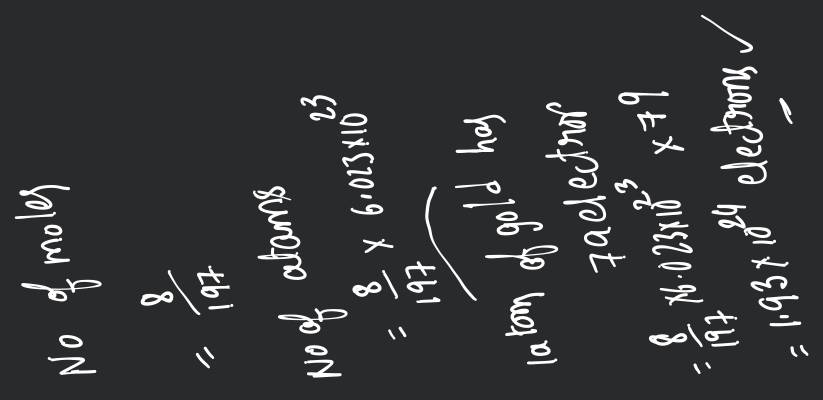 No of moles
= 8/197
No of atams
= 8/197 x 6.023x10^23
1atom of gold has
79electror
= 8/197 x6.023x10^23 x79
= 1.93x10^24 electrons ✓